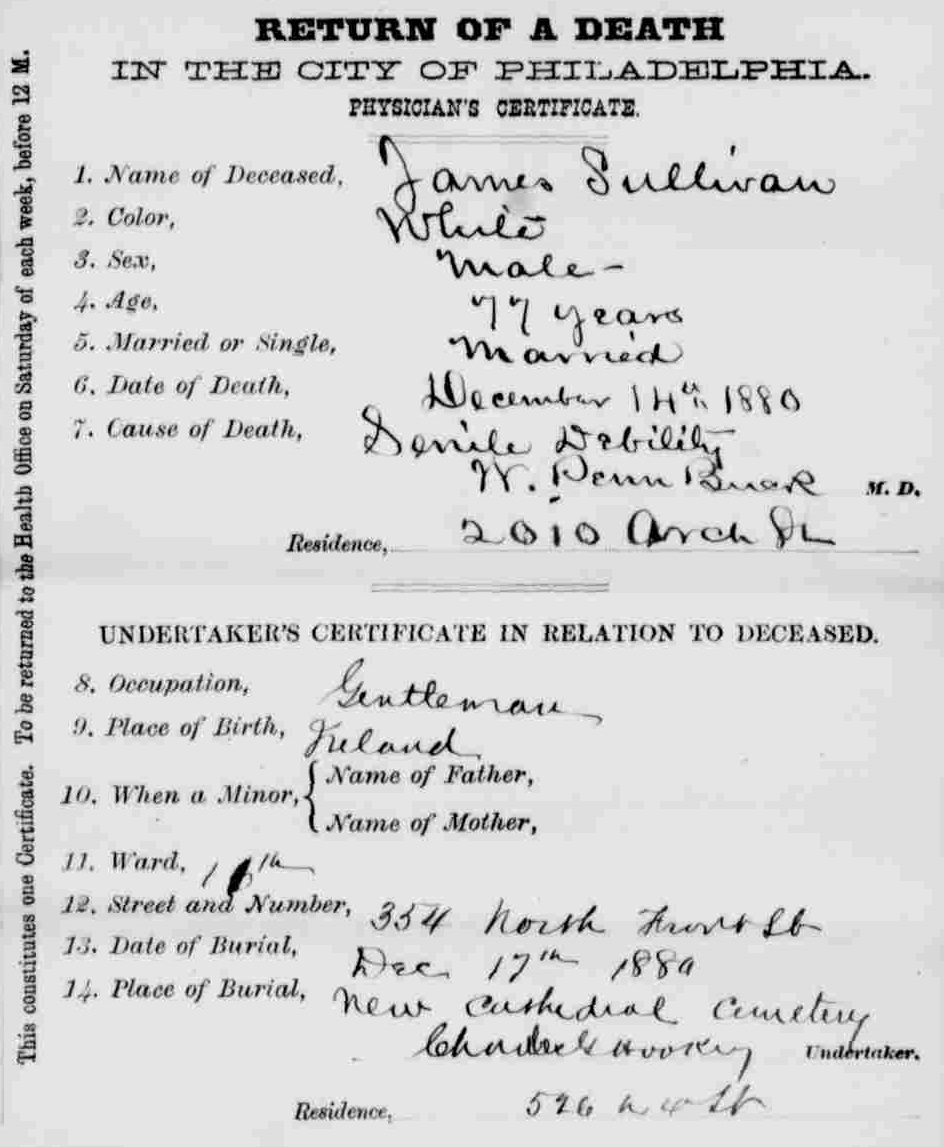 RETURN OF A DEATH
IN THE CITY OF PHILADELPHIA.
PHYSICIAN'S CERTIFICATE.
1. Name of Deceased, James Sullivan
2. Color, White
3. Sex, Male –
4. Age, 77 years
5. Married or Single, Married
6. Date of Death, December 14th 1880
7. Cause of Death, Senile Debility
W. Penn Buck M. D.
Residence, 2010 Arch St
UNDERTAKER'S CERTIFICATE IN RELATION TO DECEASED.
8. Occupation, Gentleman
9. Place of Birth, Ireland
10. When a Minor, { Name of Father,
Name of Mother,
11. Ward,
12. Street and Number, 354 North Front St
13. Date of Burial, Dec 17th 1880
14. Place of Burial, New Cathedral Cemetery
Charles Undertaker.
Residence, 526 St
This constitutes one Certificate. To be returned to the Health Office on Saturday of each week, before 12 M.